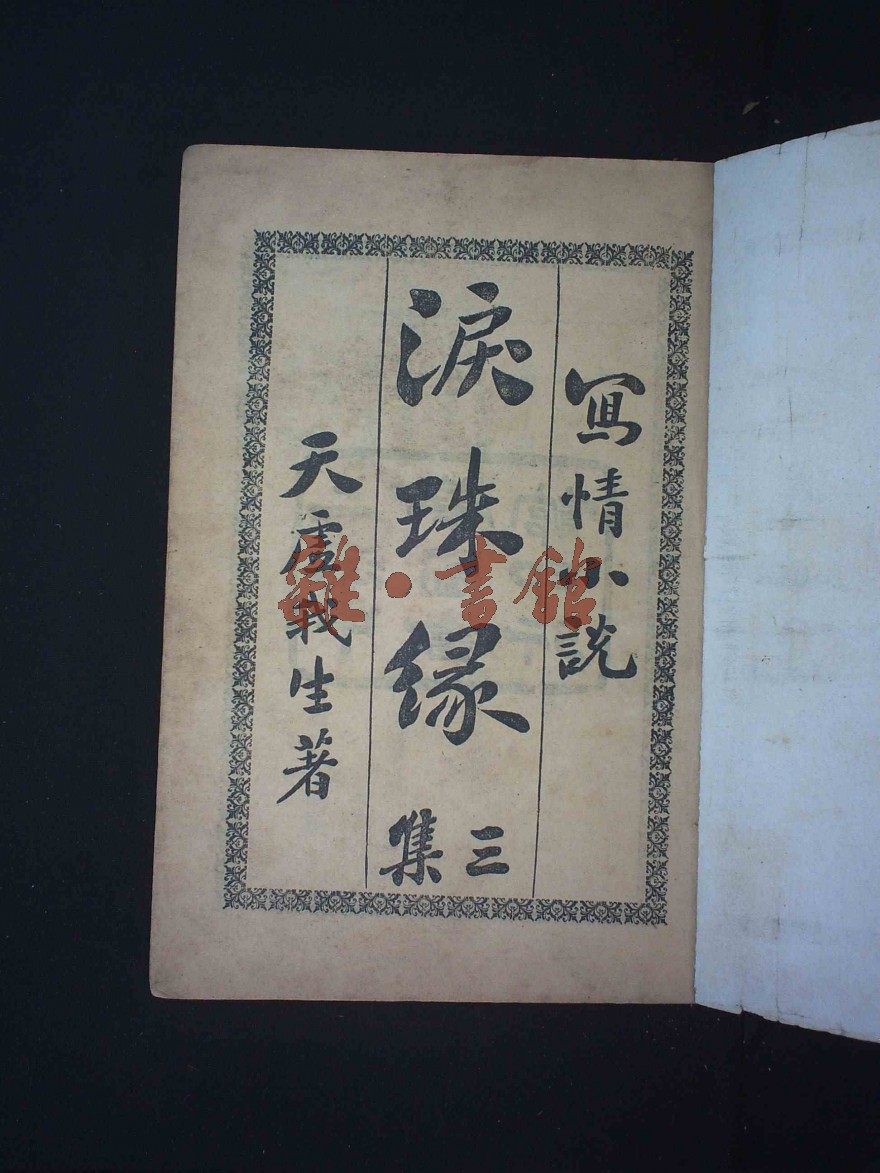 寫情小說
淚珠緣
三集
天虛我生著
雜·書館